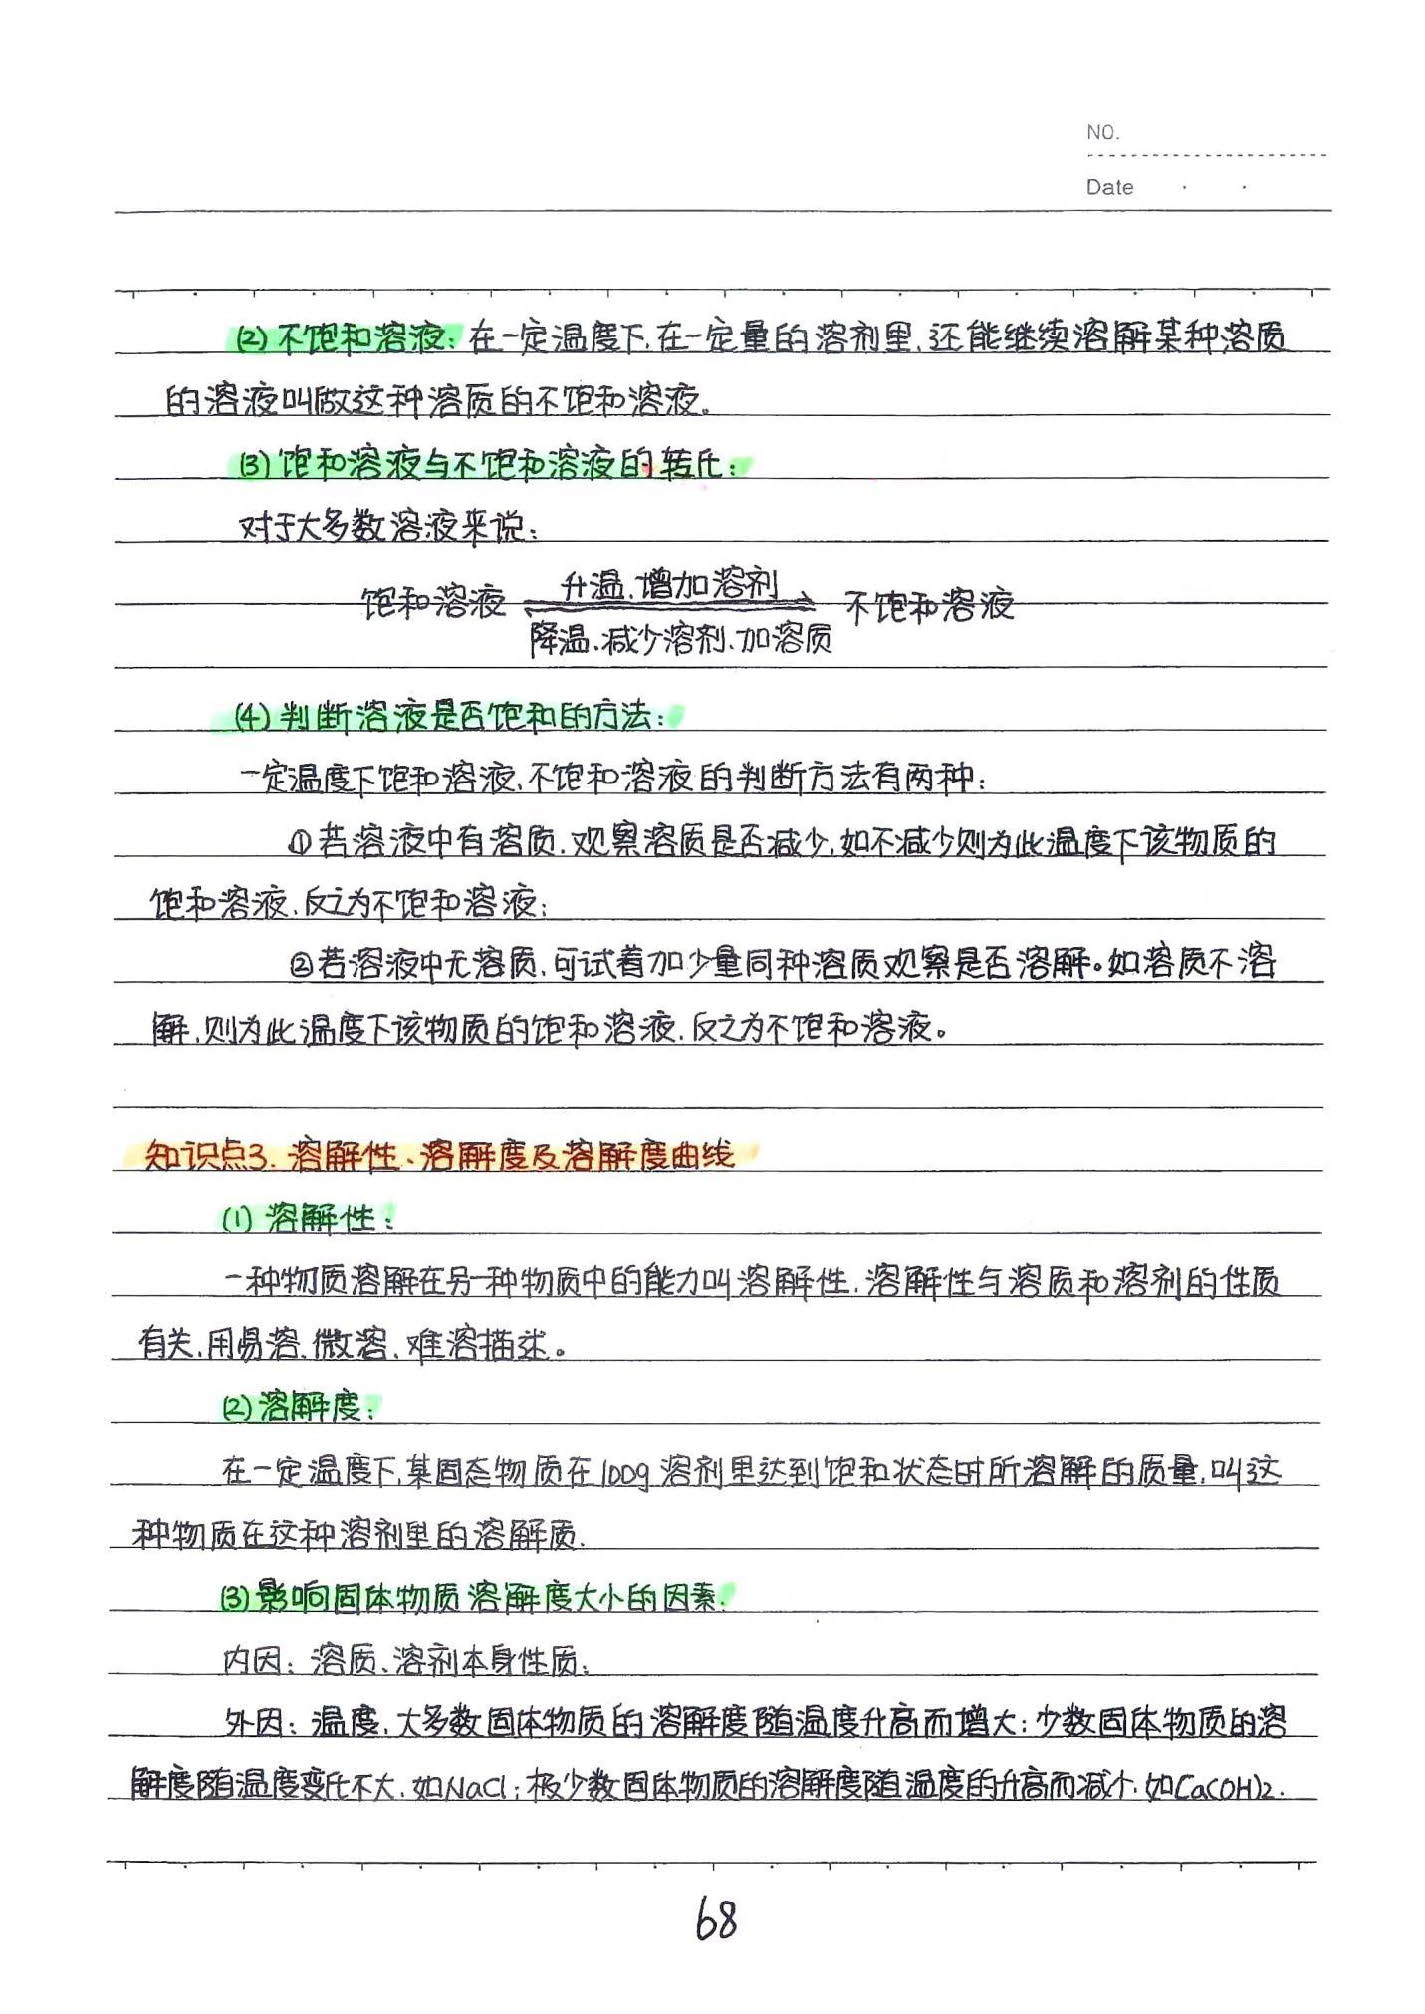 NO.
Date
(2) 不饱和溶液: 在一定温度下,在一定量的溶剂里,还能继续溶解某种溶质
的溶液叫做这种溶质的不饱和溶液。
(3) 饱和溶液与不饱和溶液的转化:
对于大多数溶液来说:
升温、增加溶剂
饱和溶液 ⇌ 不饱和溶液
降温、减少溶剂、加溶质
(4) 判断溶液是否饱和的方法:
一定温度下饱和溶液、不饱和溶液的判断方法有两种:
①若溶液中有溶质,观察溶质是否减少,如不减少则为此温度下该物质的
饱和溶液,反之为不饱和溶液;
②若溶液中无溶质,可试着加少量同种溶质观察是否溶解。如溶质不溶
解,则为此温度下该物质的饱和溶液,反之为不饱和溶液。
知识点3. 溶解性、溶解度及溶解度曲线
(1) 溶解性:
一种物质溶解在另一种物质中的能力叫溶解性,溶解性与溶质和溶剂的性质
有关,用易溶、微溶、难溶描述。
(2) 溶解度:
在一定温度下,某固态物质在100g溶剂里达到饱和状态时所溶解的质量,叫这
种物质在这种溶剂里的溶解质.
(3) 影响固体物质溶解度大小的因素:
内因: 溶质、溶剂本身性质;
外因: 温度,大多数固体物质的溶解度随温度升高而增大;少数固体物质的溶
解度随温度变化不大,如NaCl;极少数固体物质的溶解度随温度的升高而减小,如Ca(OH)2.
68